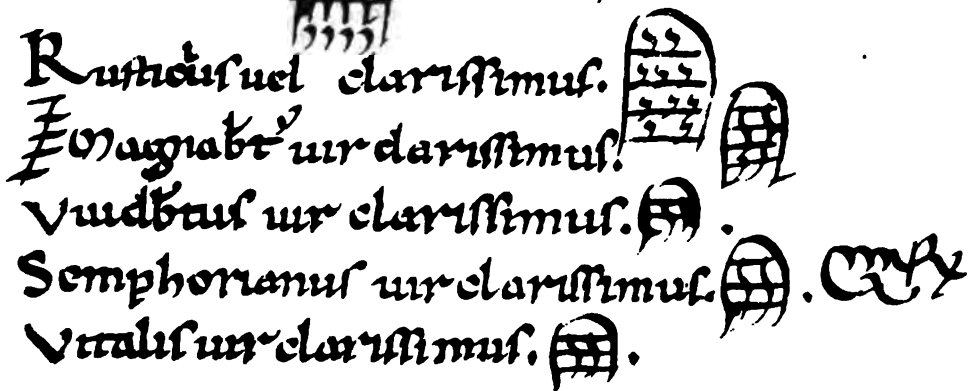 Rusticus uel clarissimus.
Magnab̄t uir clarissimus.
Vuidb̄tus uir clarissimus.
Semphorianus uir clarissimus.
Vitalis uir clarissimus.